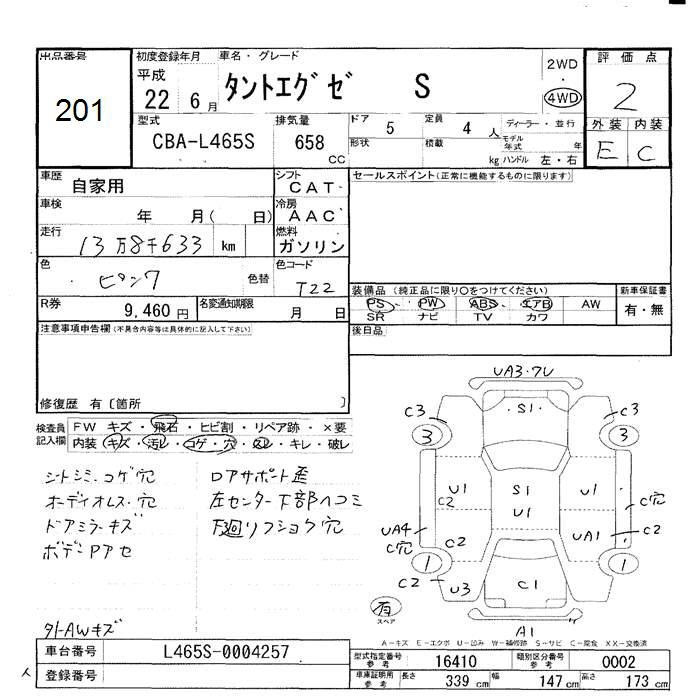 出品番号
201
初度登録年月
平成
22 6 月
車名・グレード
タントエグゼ S
2WD
・
4WD
評価点
2
外装 内装
E C
型式
CBA-L465S
排気量
658
cc
ドア 5
定員 4 人
形状
積載 kg
ディーラー・並行
モデル年式 年
ハンドル 左・右
車歴
自家用
シフト
CAT
セールスポイント(正常に機能するものに限ります)
車検
年 月( 日)
冷房
AAC
走行
13万8千633 km
燃料
ガソリン
色
ピンク
色替
色コード
T22
装備品(純正品に限り○をつけてください)
PS PW ABS エアB AW
SR ナビ TV カワ
新車保証書
有・無
R券
9,460 円
名変通知期限
月 日
後日品
注意事項申告欄(不具合内容等は具体的に記入して下さい)
修復歴 有〔箇所 〕
検査員記入欄
FW キズ・飛石・ヒビ割・リペア跡・×要
内装 キズ・汚レ・コゲ・穴・スレ・キレ・破レ
シートシミ、コゲ穴
オーディオレス・穴
ドアミラーキズ
ボデーPアセ
外-AWキズ
ロアサポート歪
左センター下部ヘコミ
下廻リフショク穴
UA3・ワレ
S1
C3
C3
3
3
U1
S1
U1
U1
C穴
C2
UA4
C穴
C2
UA1
C2
1
1
C2
U3
C1
有
スペア
A1
A-キズ E-エクボ U-凹み W-補修跡 S-サビ C-腐食 XX-交換済
車台番号
L465S-0004257
登録番号
型式指定番号
参考
16410
類別区分番号
参考
0002
車庫証明用
参考
長さ 339 cm
幅 147 cm
高さ 173 cm